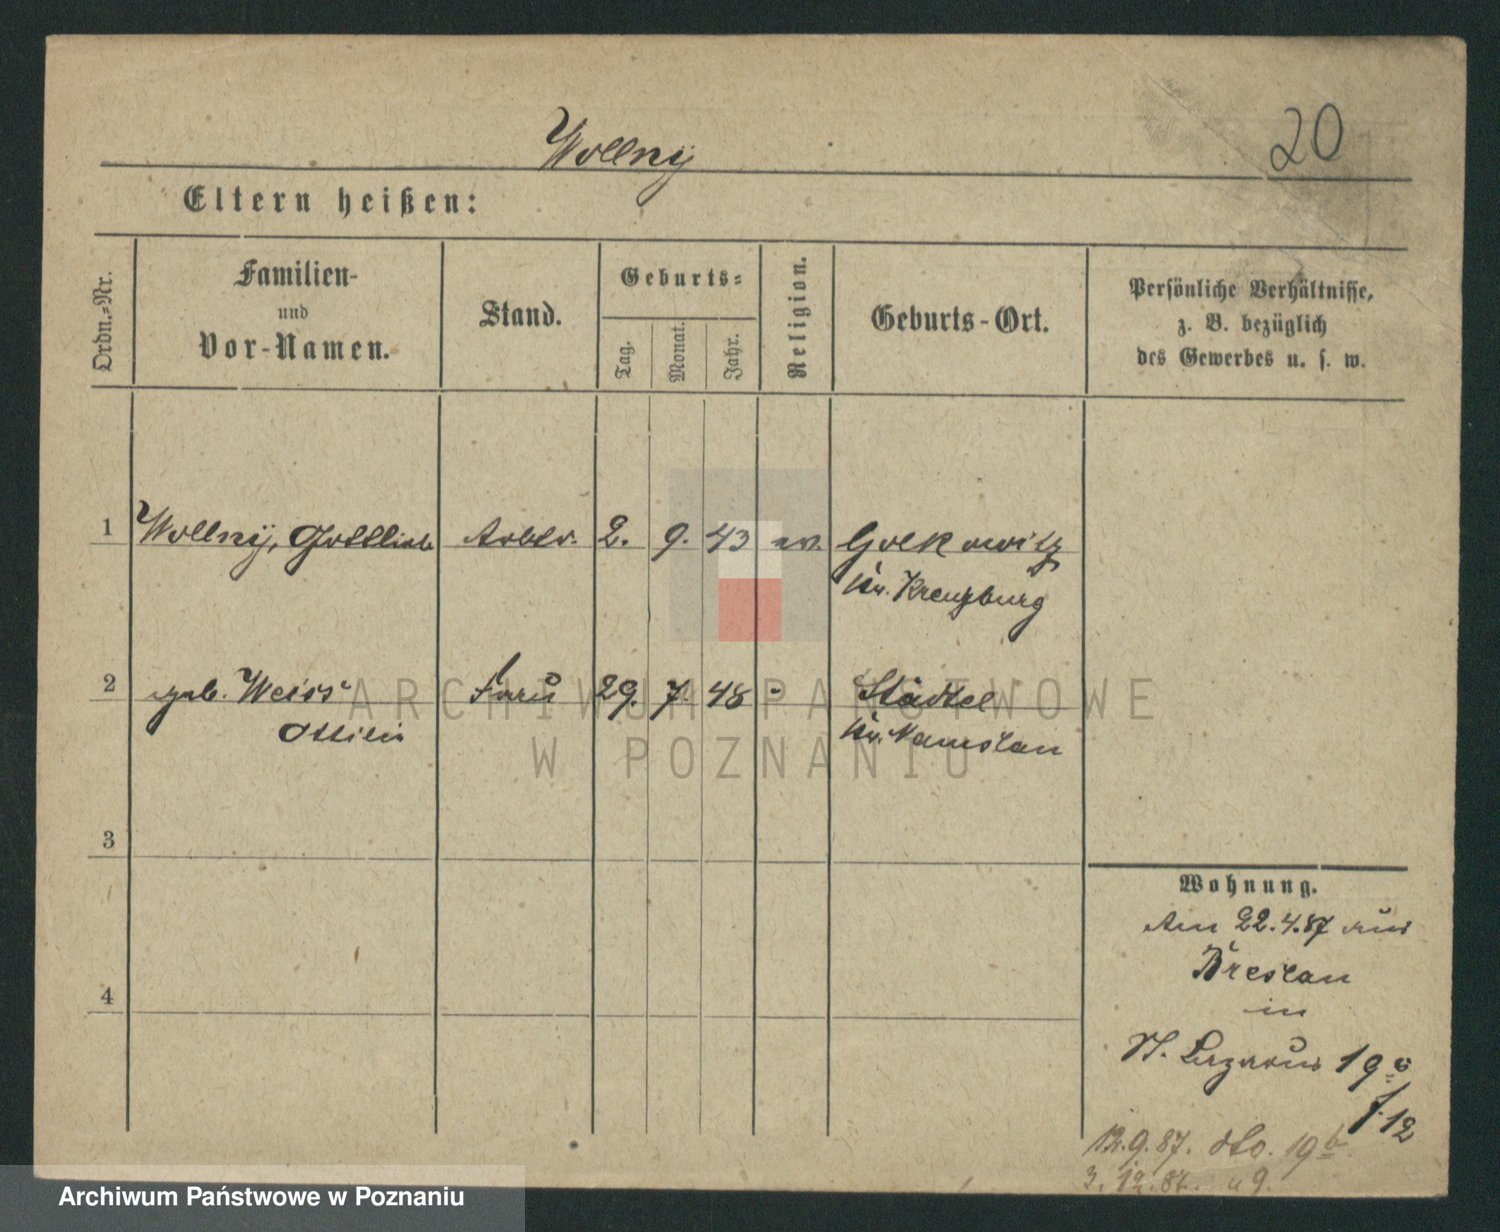 Wollny
20
Eltern heißen:
Ordn.-Nr.
Familien-
und
Vor-Namen.
Stand.
Geburts-
Tag.
Monat.
Jahr.
Religion.
Geburts-Ort.
Persönliche Verhältnisse,
z. B. bezüglich
des Gewerbes u. s. w.
1 Wollny, Gottlieb Arbtr. 2. 9. 43 ev. Golkowitz
Kr. Kreuzburg
2 geb. Weiss Frau 29. 7. 48 - Städtel
Ottilie
Kr. Namslau
3
4
Wohnung.
Am 22.4.87 aus
Breslau
in
St. Lazarus 19
f. 12
12.9.87. dto. 19 b
3. 12. 87. u 9.
ARCHIWUM PAŃSTWOWE
W POZNANIU
Archiwum Państwowe w Poznaniu